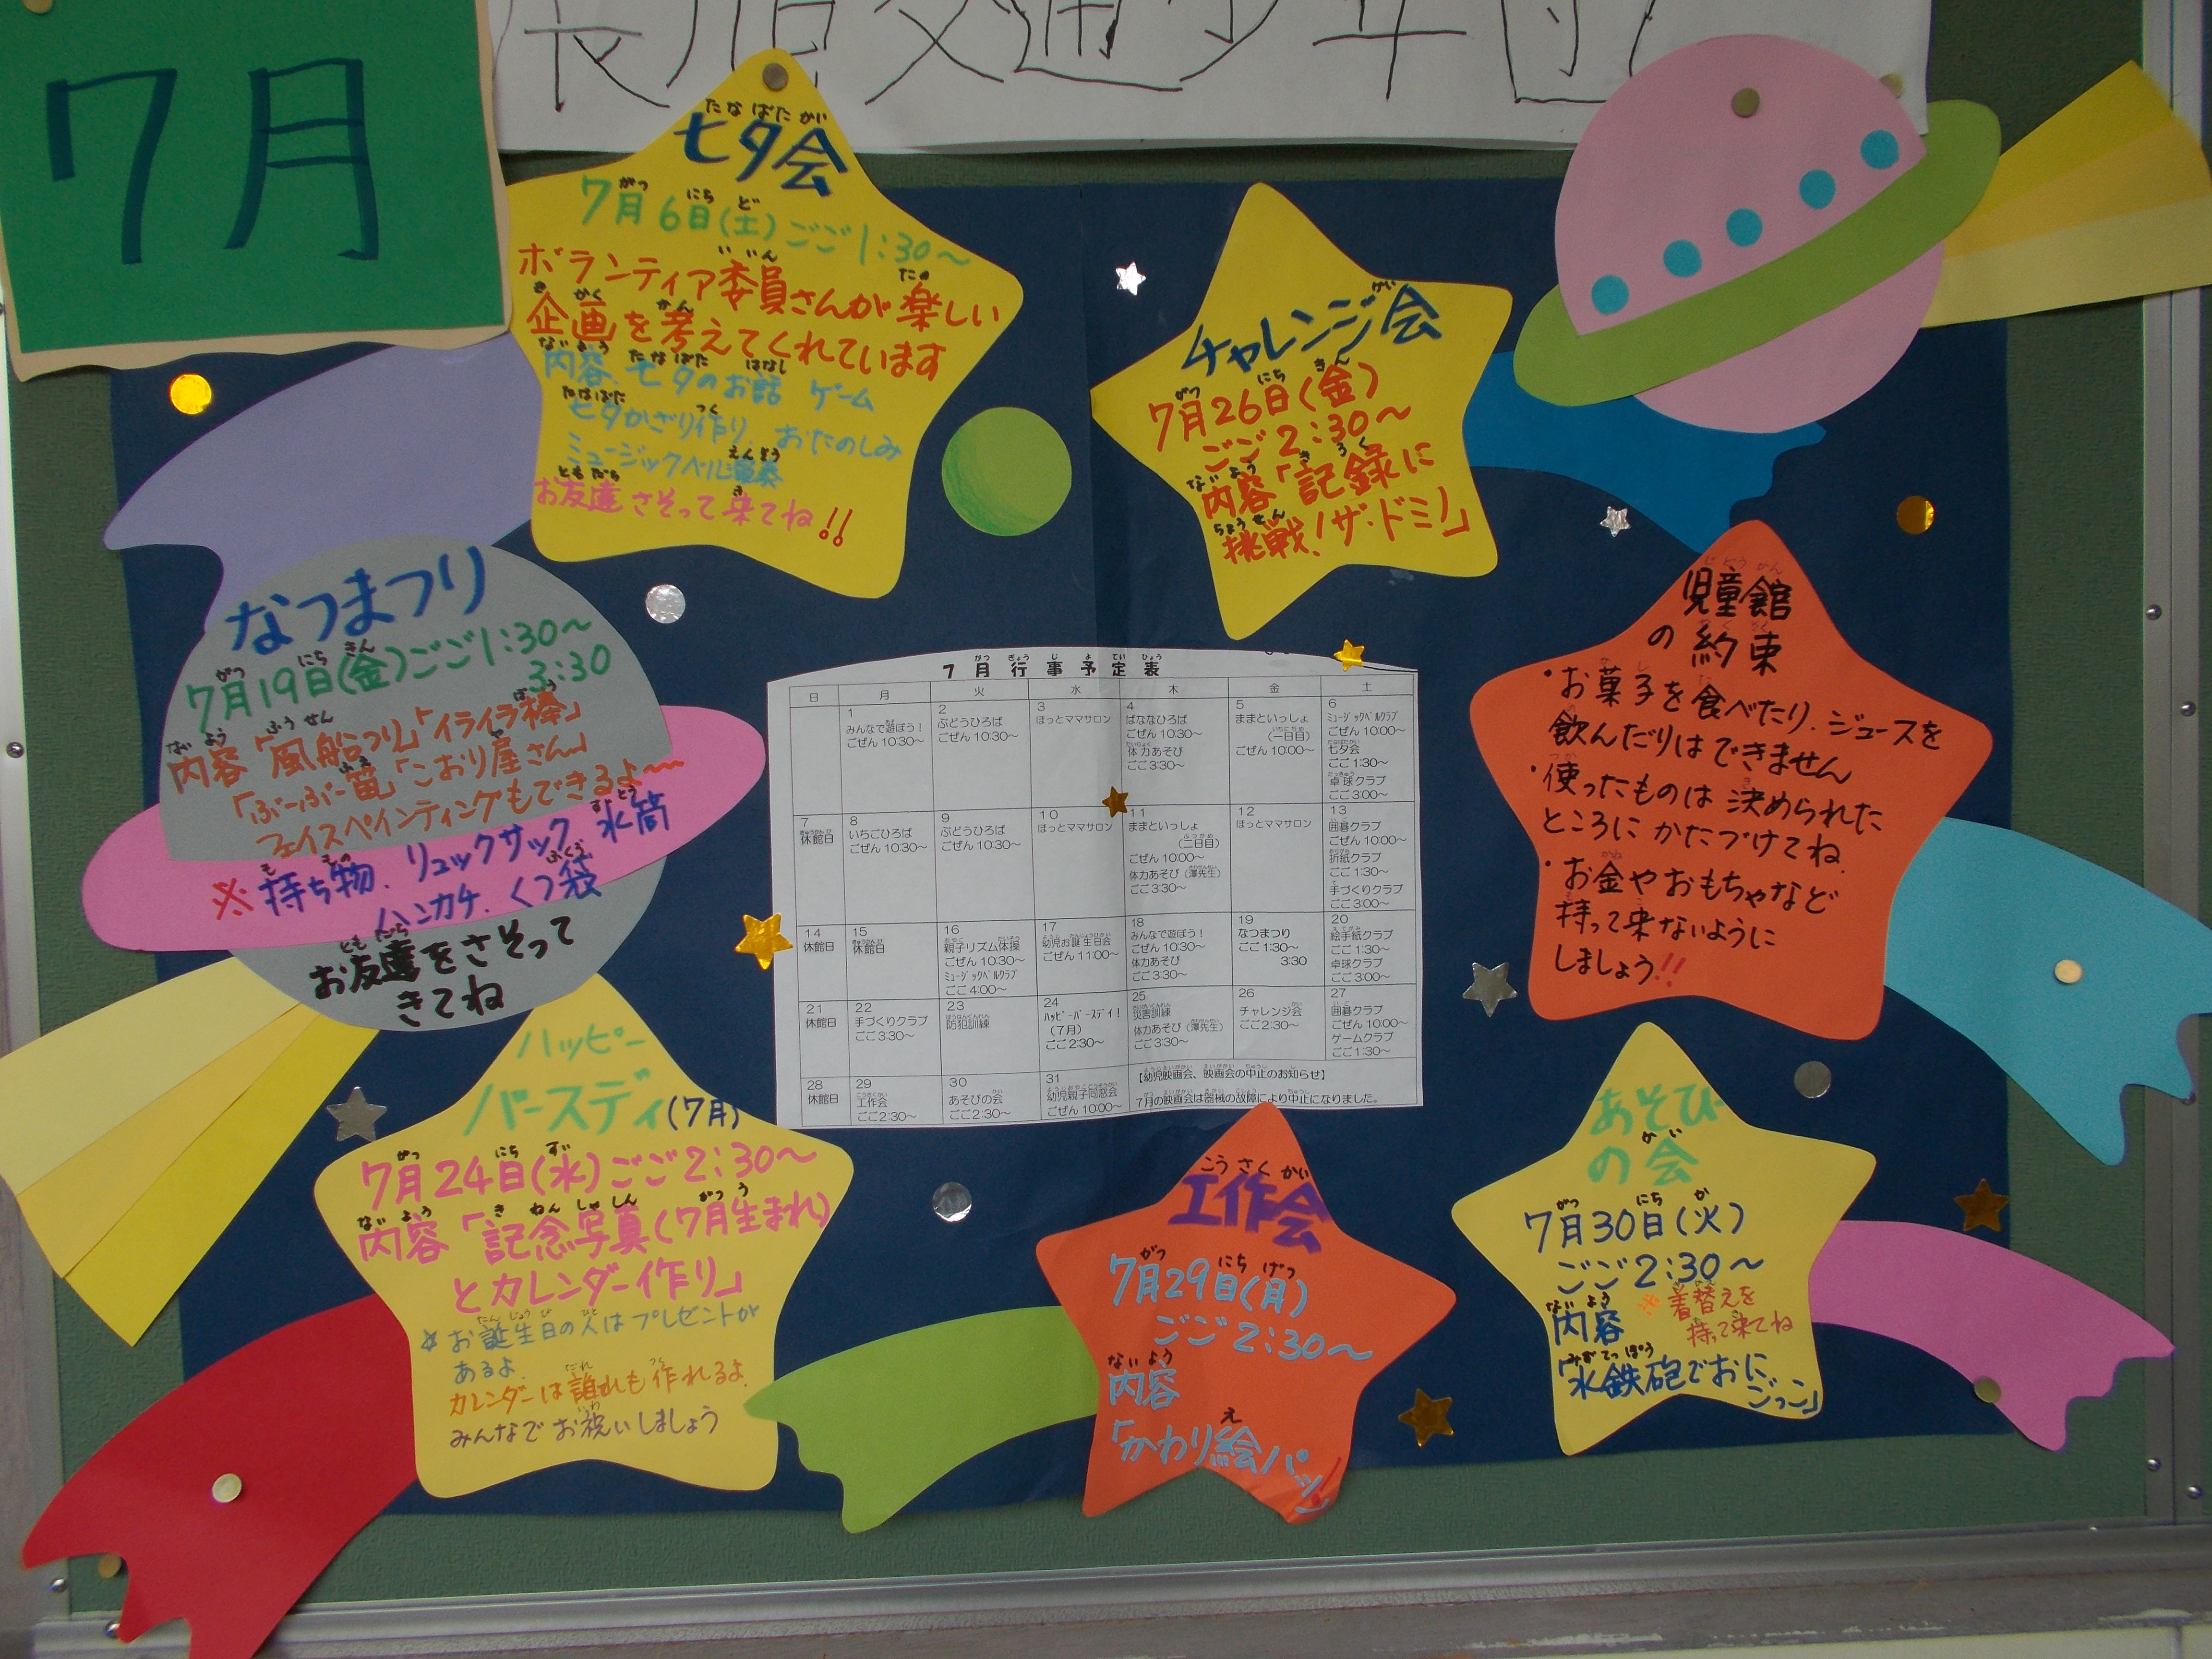 7月
七夕会
7月6日(土)ごご1:30～
ボランティア委員さんが楽しい
企画を考えてくれています
内容、七夕のお話 ゲーム
七夕かざり作り、おたのしみ
ミュージックベル演奏
お友達さそって来てね!!
チャレンジ会
7月26日(金)
ごご2:30～
内容「記録に
挑戦!ザ・ドミノ」
なつまつり
7月19日(金)ごご1:30～
3:30
内容「風船つり」「イライラ棒」
「ぶーぶー笛」「こおり屋さん」
フェイスペインティングもできるよ～
※持ち物、リュックサック、水筒
ハンカチ、くつ袋
お友達をさそって
きてね
児童館
の約束
・お菓子を食べたり、ジュースを
飲んだりはできません
・使ったものは決められた
ところにかたづけてね
・お金やおもちゃなど
持って来ないように
しましょう!!
7月行事予定表
日 月 火 水 木 金 土
1 みんなで遊ぼう! ごぜん10:30～
2 ぶどうひろば ごぜん10:30～
3 ほっとママサロン
4 ばななひろば ごぜん10:30～ 体力あそび ごご3:30～
5 ままといっしょ (一日目) ごぜん10:00～
6 ミュージックベルクラブ ごぜん10:00～ 七夕会 ごご1:30～ 卓球クラブ ごご3:00～
7 休館日
8 いちごひろば ごぜん10:30～
9 ぶどうひろば ごぜん10:30～
10 ほっとママサロン
11 ままといっしょ (二日目) ごぜん10:00～ 体力あそび(澤先生) ごご3:30～
12 ほっとママサロン
13 囲碁クラブ ごぜん10:00～ 折紙クラブ ごご1:30～ 手づくりクラブ ごご3:00～
14 休館日
15 休館日
16 親子リズム体操 ごぜん10:30～ ミュージックベルクラブ ごご4:00～
17 幼児お誕生日会 ごぜん11:00～
18 みんなで遊ぼう! ごぜん10:30～ 体力あそび ごご3:30～
19 なつまつり ごご1:30～ 3:30
20 絵手紙クラブ ごご1:30～ 卓球クラブ ごご3:00～
21 休館日
22 手づくりクラブ ごご3:30～
23 防犯訓練
24 ハッピーバースデイ! (7月) ごご2:30～
25 災害訓練 体力あそび(澤先生) ごご3:30～
26 チャレンジ会 ごご2:30～
27 囲碁クラブ ごぜん10:00～ ゲームクラブ ごご1:30～
28 休館日
29 工作会 ごご2:30～
30 あそびの会 ごご2:30～
31 幼児親子同窓会 ごぜん10:00～
【幼児映画会、映画会の中止のお知らせ】
7月の映画会は器械の故障により中止になりました。
ハッピー
バースディ(7月)
7月24日(水)ごご2:30～
内容「記念写真(7月生まれ)
とカレンダー作り」
☆お誕生日の人はプレゼントが
あるよ.
カレンダーは誰れも作れるよ.
みんなでお祝いしましょう
工作会
7月29日(月)
ごご2:30～
内容
「かわり絵パッ!」
あそび
の会
7月30日(火)
ごご2:30～
内容 ※着替えを
持って来てね
「水鉄砲でおに
ごっこ」